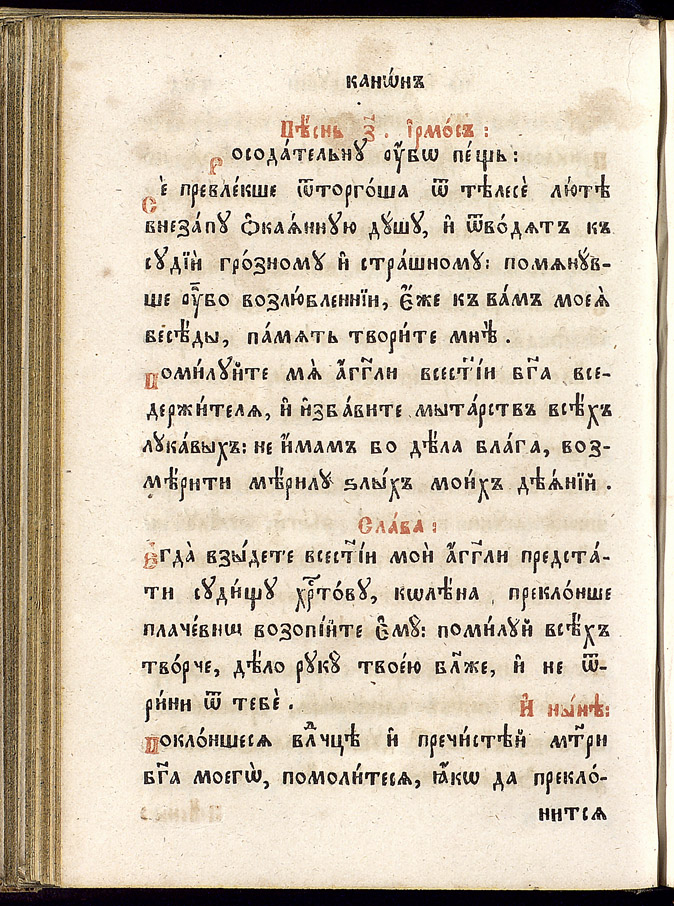 канѡ́нъ
Пѣ́снь з҃. і҆рмо́съ:
Росода́телънꙋ ᲂу҆́бѡ пе́щь:
Сѐ превле́кше ѿторго́ша ѿ тѣлесѐ лю́тѣ
внеза́пꙋ ѻ҆каѧ́ннꙋю дꙋ́шꙋ, и҆ ѿво́дѧтъ къ
сꙋдїи̑ гро́зномꙋ и҆ стра́шномꙋ: помѧнꙋ́в-
ше ᲂу҆̀бо возлю́бленнїи, є҆́же къ ва́мъ моеѧ̀
бесѣ́ды, па́мѧть твори́те мнѣ̀.
Поми́лꙋйте мѧ̀ а҆́гг҃ли всест҃і́и бг҃а все-
держи́телѧ, и҆ и҆зба́вите мыта́рствъ всѣ́хъ
лꙋка́выхъ: не и҆́мамъ бо дѣ́ла бла́га, воз-
мѣ́рити мѣ́рилꙋ ѕлы́хъ мои́хъ дѣѧ́нїй.
Сла́ва:
Е҆гда̀ взы́дете всест҃і́и моѝ а҆́гг҃ли предста́-
ти сꙋди́щꙋ хрⷭ҇то́вꙋ, кѡлѣ́на прекло́нше
плаче́внѡ возопі́йте є҆мꙋ̀: поми́лꙋй всѣ́хъ
тво́рче, дѣ́ло рꙋкꙋ̀ твоє́ю бл҃же, и҆ не ѿ-
ри́ни ѿ тебѐ.
И҆ ны́нѣ:
Покло́ншесѧ влⷣчцѣ и҆ пречи́стѣй мт҃ри
бг҃а моегѡ̀, помоли́тесѧ, ꙗ҆́кѡ да прекло́-
нитсѧ